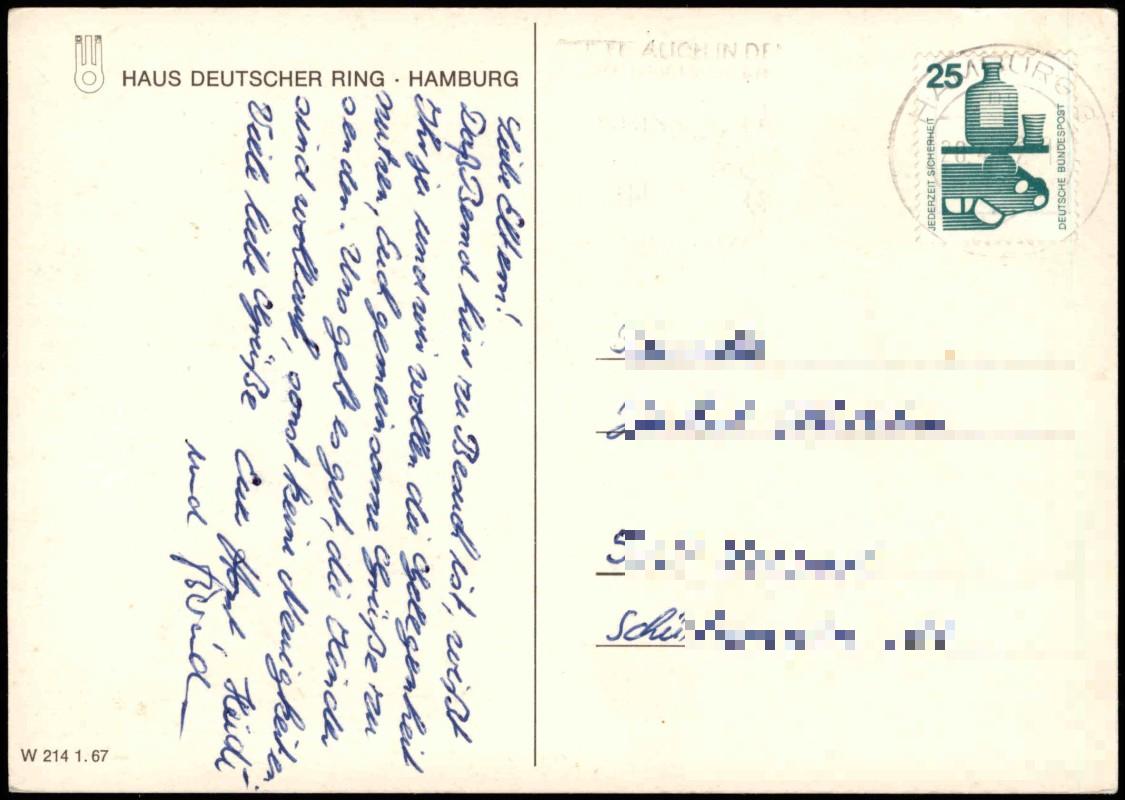 HAUS DEUTSCHER RING · HAMBURG
Liebe Eltern!
Daß Bernd hier zu Besuch ist, wißt
Ihr ja und wir wollen die Gelegenheit
nutzen, Euch gemeinsame Grüße zu
senden. Uns geht es gut, die Kinder
sind wohlauf, sonst keine Neuigkeiten.
Viele liebe Grüße Eure Horst, Heidi
und Bernd
W 214 1.67
AUCH IN
HAMBURG
25
JEDERZEIT SICHERHEIT
DEUTSCHE BUNDESPOST